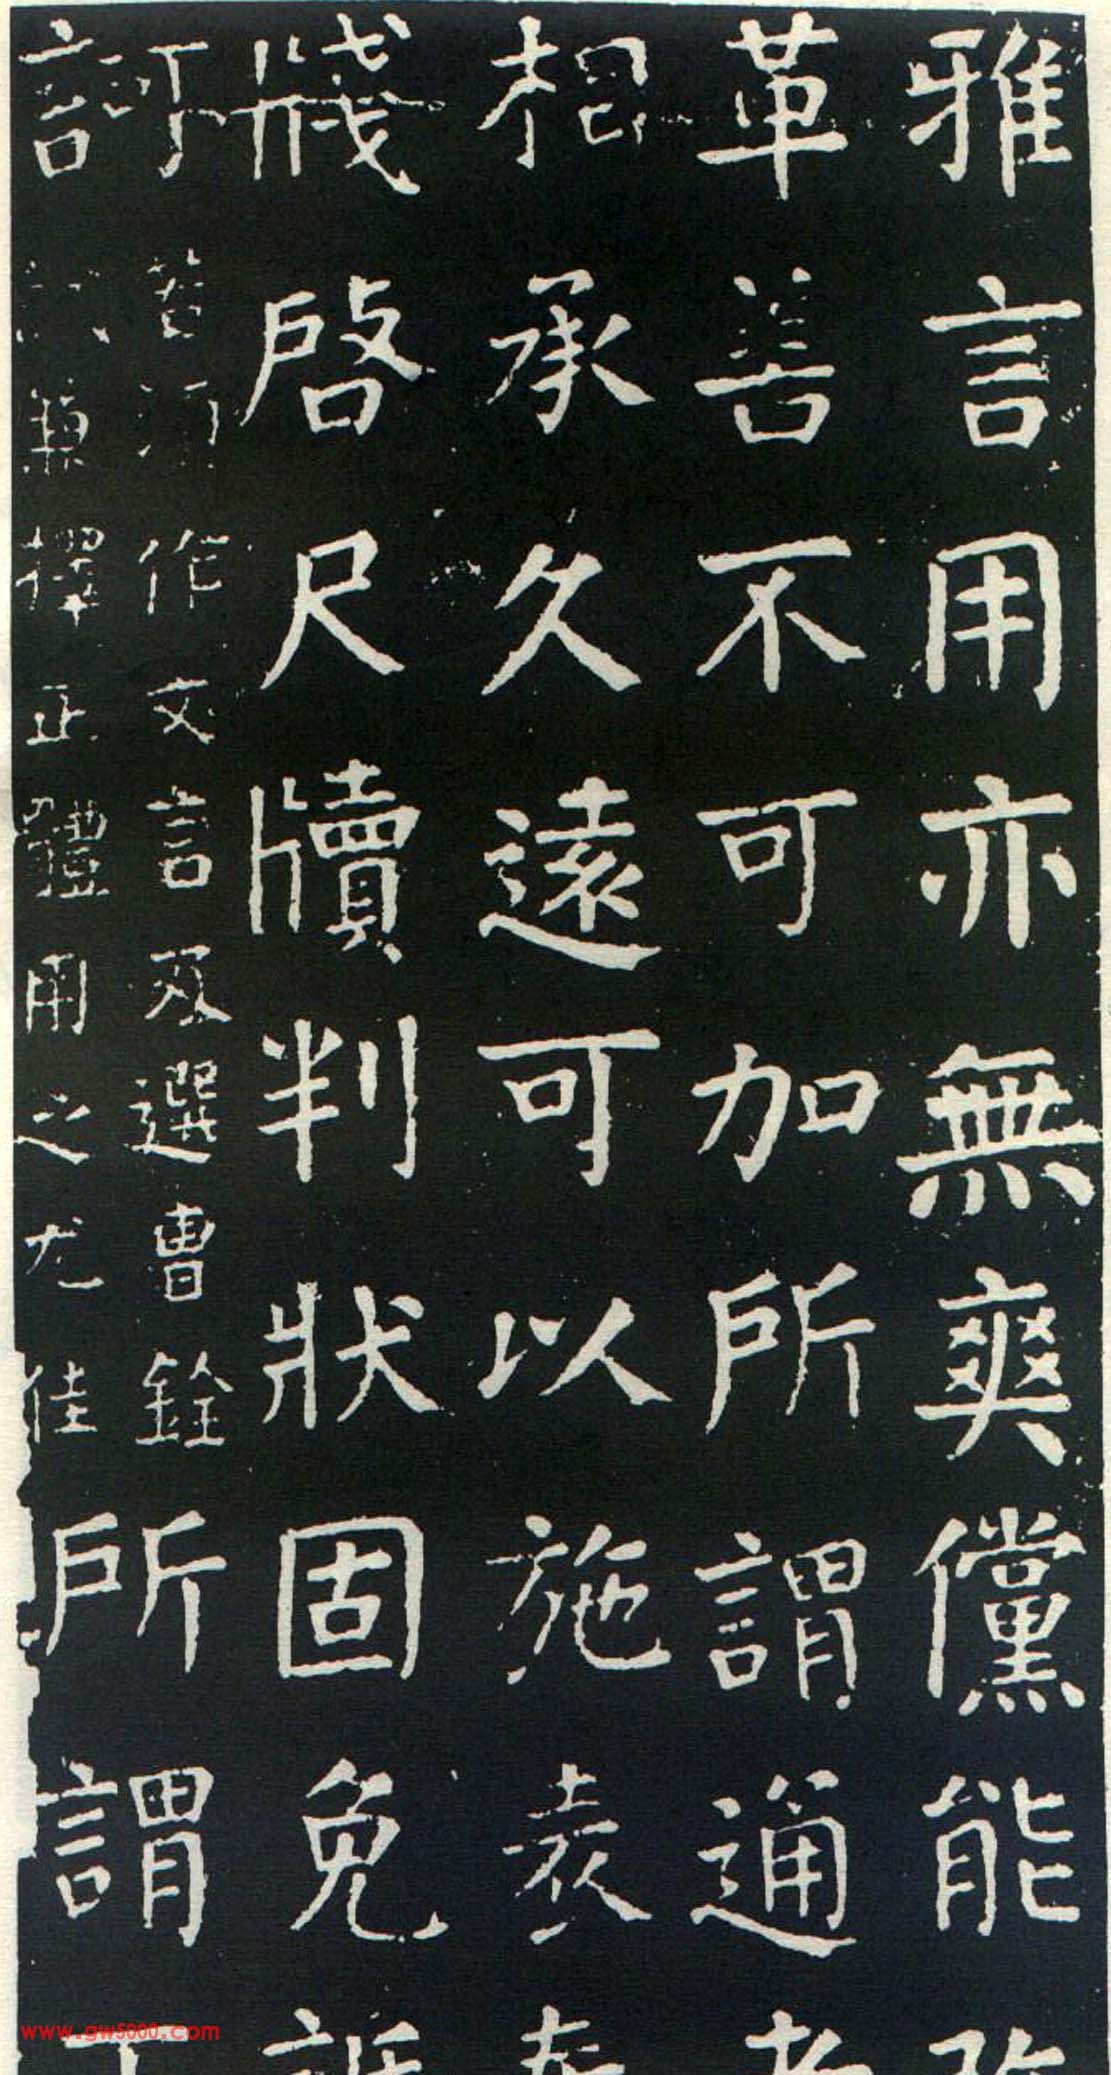 雅言用亦無爽儻能改
革善不可加所謂通者
相承久遠可以施表奏
牋啓尺牘判狀固免詆
訶
若須作文言及選曹銓
試兼擇正體用之尤佳
所謂
www.gw5000.com